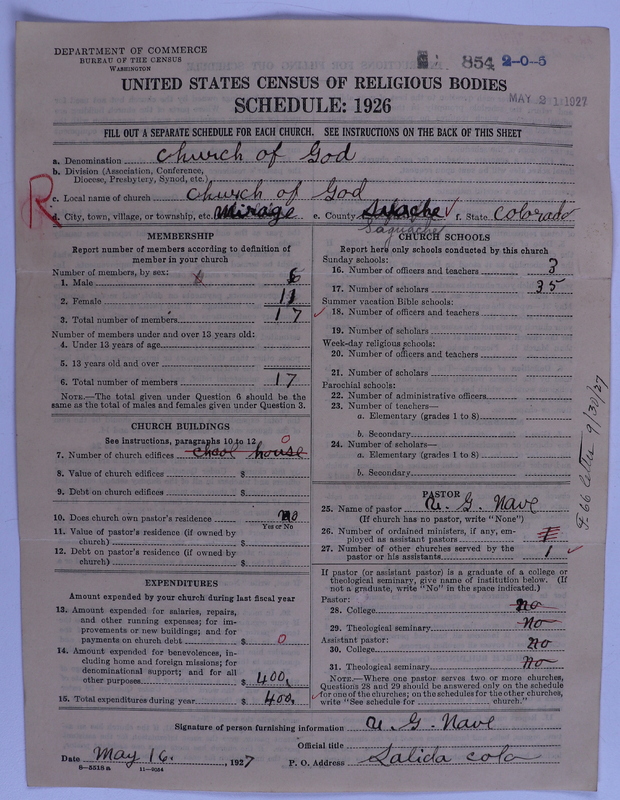 DEPARTMENT OF COMMERCE
BUREAU OF THE CENSUS
WASHINGTON
854 2-0-5
UNITED STATES CENSUS OF RELIGIOUS BODIES
SCHEDULE: 1926
MAY 21 1927
FILL OUT A SEPARATE SCHEDULE FOR EACH CHURCH. SEE INSTRUCTIONS ON THE BACK OF THIS SHEET
a. Denomination church of God
b. Division (Association, Conference,
Diocese, Presbytery, Synod, etc.)
R
c. Local name of church church of God
d. City, town, village, or township, etc. Mirage e. County Syache f. State Colorado
Saguache
MEMBERSHIP
Report number of members according to definition of
member in your church
Number of members, by sex:
1. Male 6
2. Female 11
3. Total number of members 17
Number of members under and over 13 years old:
4. Under 13 years of age
5. 13 years old and over
6. Total number of members 17
NOTE.—The total given under Question 6 should be
the same as the total of males and females given under Question 3.
CHURCH BUILDINGS
See instructions, paragraphs 10 to 12
0
7. Number of church edifices chool house
8. Value of church edifices $
9. Debt on church edifices $
10. Does church own pastor's residence no
Yes or No
11. Value of pastor's residence (if owned by
church) $
12. Debt on pastor's residence (if owned by
church) $
EXPENDITURES
Amount expended by your church during last fiscal year
13. Amount expended for salaries, repairs,
and other running expenses; for im-
provements or new buildings; and for
payments on church debt $ 0
14. Amount expended for benevolences, in-
cluding home and foreign missions; for
denominational support; and for all
other purposes $ 400,
15. Total expenditures during year $ 400,
CHURCH SCHOOLS
Report here only schools conducted by this church
Sunday schools:
16. Number of officers and teachers 3
17. Number of scholars 35
Summer vacation Bible schools:
18. Number of officers and teachers
19. Number of scholars
Week-day religious schools:
20. Number of officers and teachers
21. Number of scholars
Parochial schools:
22. Number of administrative officers
23. Number of teachers—
a. Elementary (grades 1 to 8)
b. Secondary
24. Number of scholars—
a. Elementary (grades 1 to 8)
b. Secondary
PASTOR
25. Name of pastor U. G. Nave
(If church has no pastor, write "None")
26. Number of ordained ministers, if any, em-
ployed as assistant pastors
27. Number of other churches served by the
pastor or his assistants 1
If pastor (or assistant pastor) is a graduate of a college or
theological seminary, give name of institution below. (If
not a graduate, write "No" in the space indicated.)
Pastor:
28. College no
29. Theological seminary no
Assistant pastor:
30. College no
31. Theological seminary no
NOTE.—Where one pastor serves two or more churches,
Questions 28 and 29 should be answered only on the schedule
for one of the churches; on the schedules for the other churches,
write "See schedule for church."
F. 66 letter 9/30/27
Signature of person furnishing information U. G. Nave
Official title
Date May 16. , 1927 P. O. Address Salida colo
8—5518a 11—9064